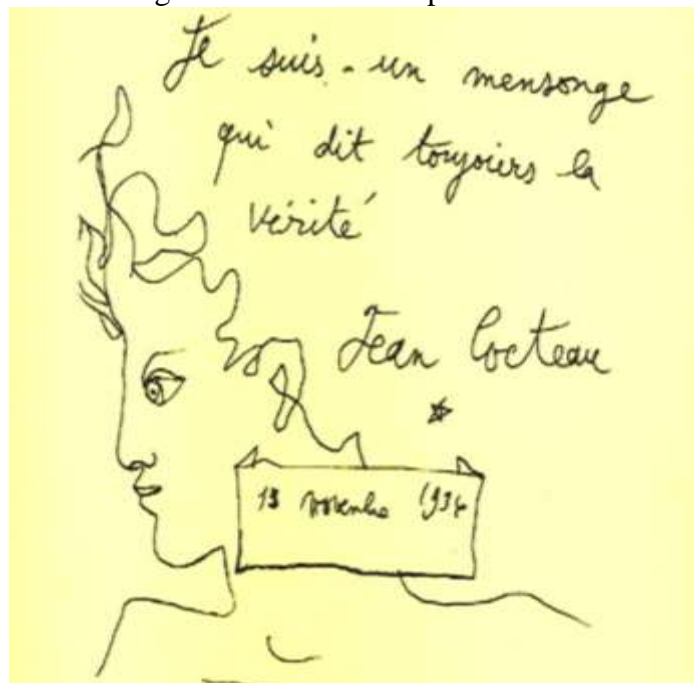 Je suis un mensonge
qui dit toujours la
vérité
Jean Cocteau
novembre